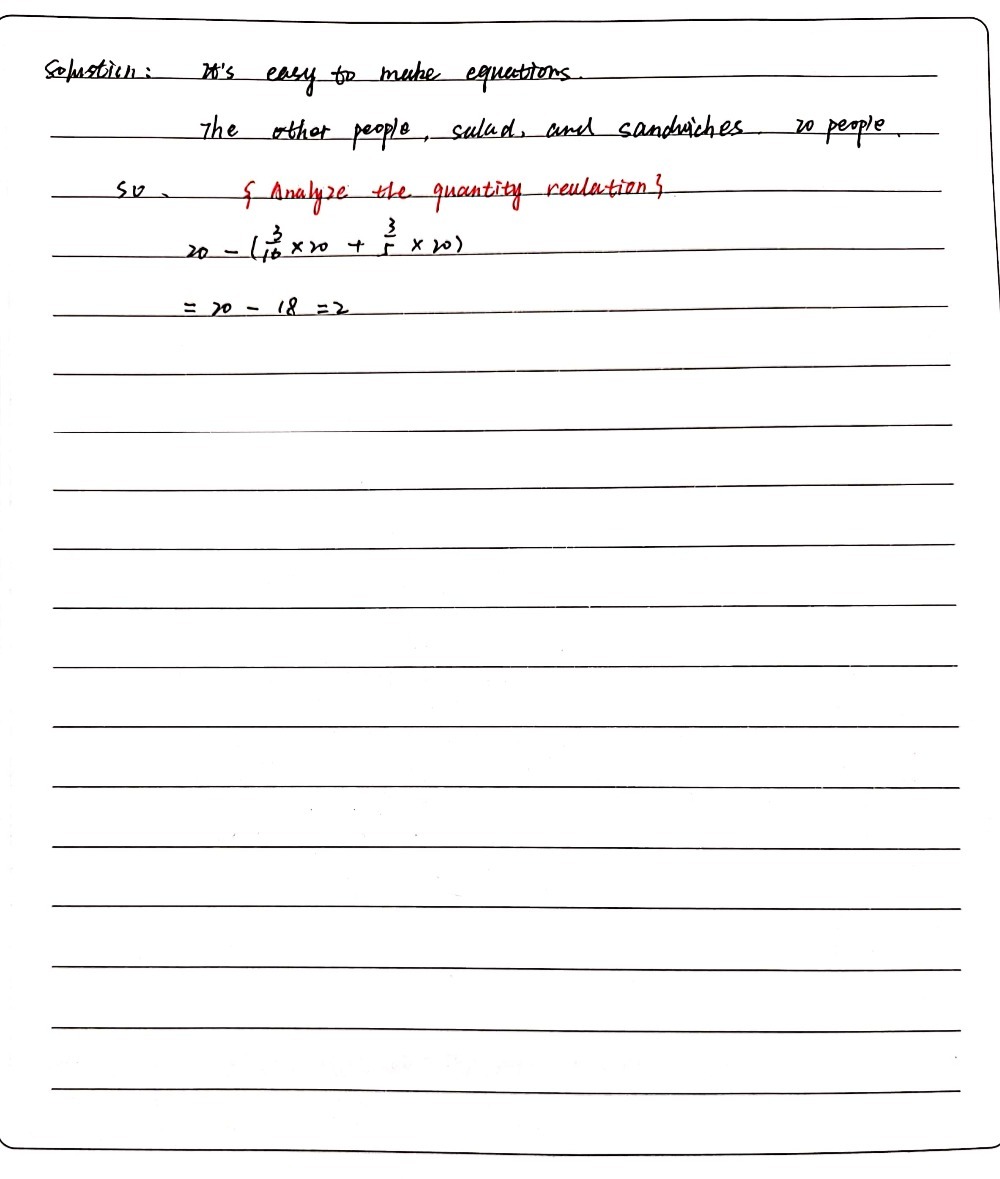 Solustion: It's easy to make equations.
The other people, salad, and sandwiches 20 people.
so. { Analyze the quantity reulation }
20 - (3/10 × 20 + 3/5 × 20)
= 20 - 18 = 2